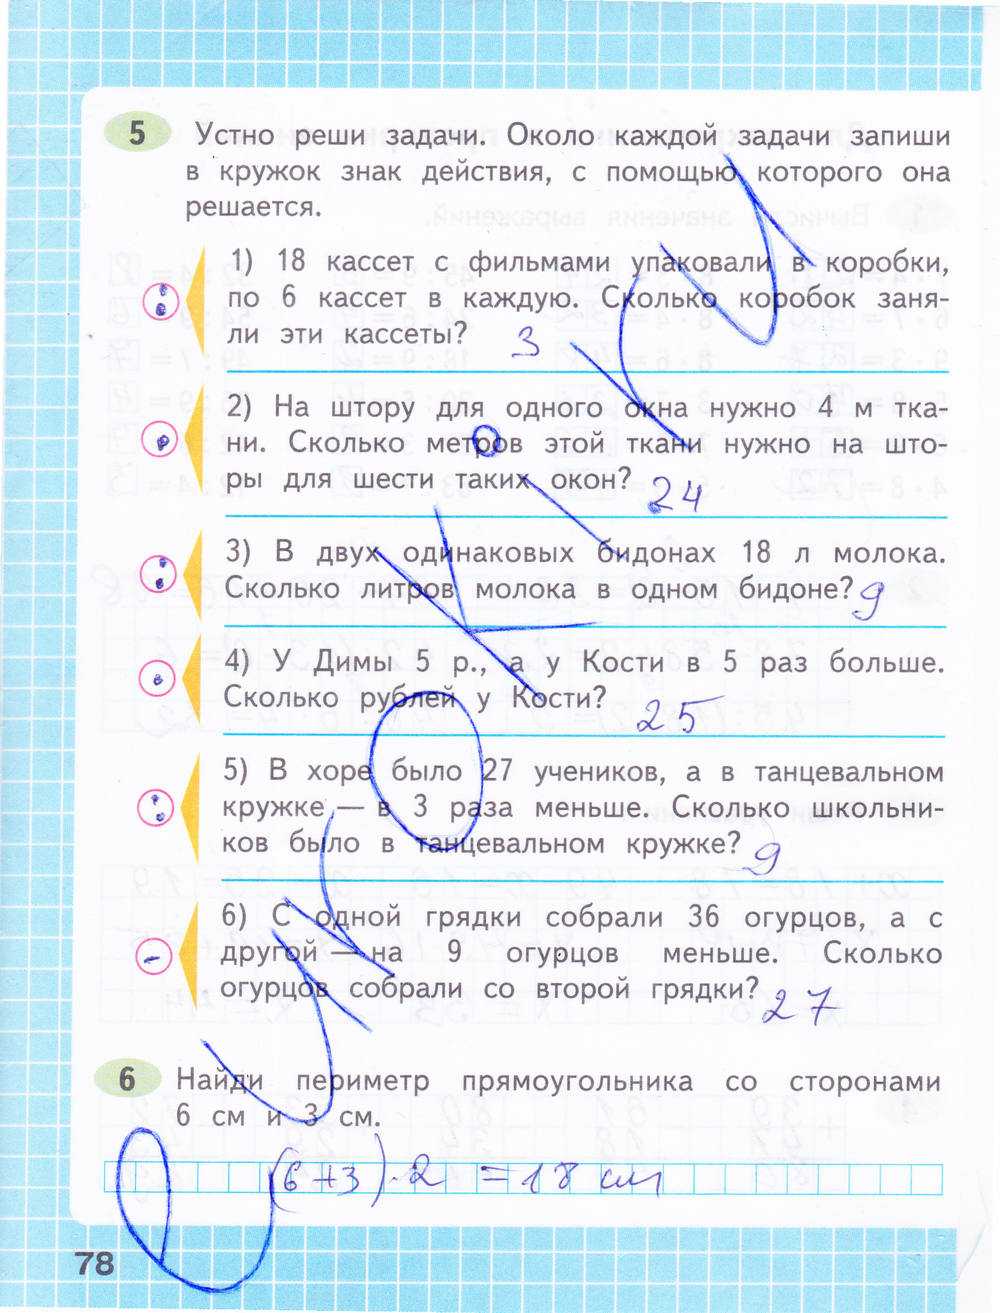 5 Устно реши задачи. Около каждой задачи запиши
в кружок знак действия, с помощью которого она
решается.
1) 18 кассет с фильмами упаковали в коробки,
: по 6 кассет в каждую. Сколько коробок заня-
ли эти кассеты? 3
2) На штору для одного окна нужно 4 м тка-
· ни. Сколько метров этой ткани нужно на што-
ры для шести таких окон? 24
3) В двух одинаковых бидонах 18 л молока.
: Сколько литров молока в одном бидоне? 9
4) У Димы 5 р., а у Кости в 5 раз больше.
· Сколько рублей у Кости? 25
5) В хоре было 27 учеников, а в танцевальном
: кружке — в 3 раза меньше. Сколько школьни-
ков было в танцевальном кружке? 9
6) С одной грядки собрали 36 огурцов, а с
- другой — на 9 огурцов меньше. Сколько
огурцов собрали со второй грядки? 27
6 Найди периметр прямоугольника со сторонами
6 см и 3 см.
(6+3)·2 =18 см
78